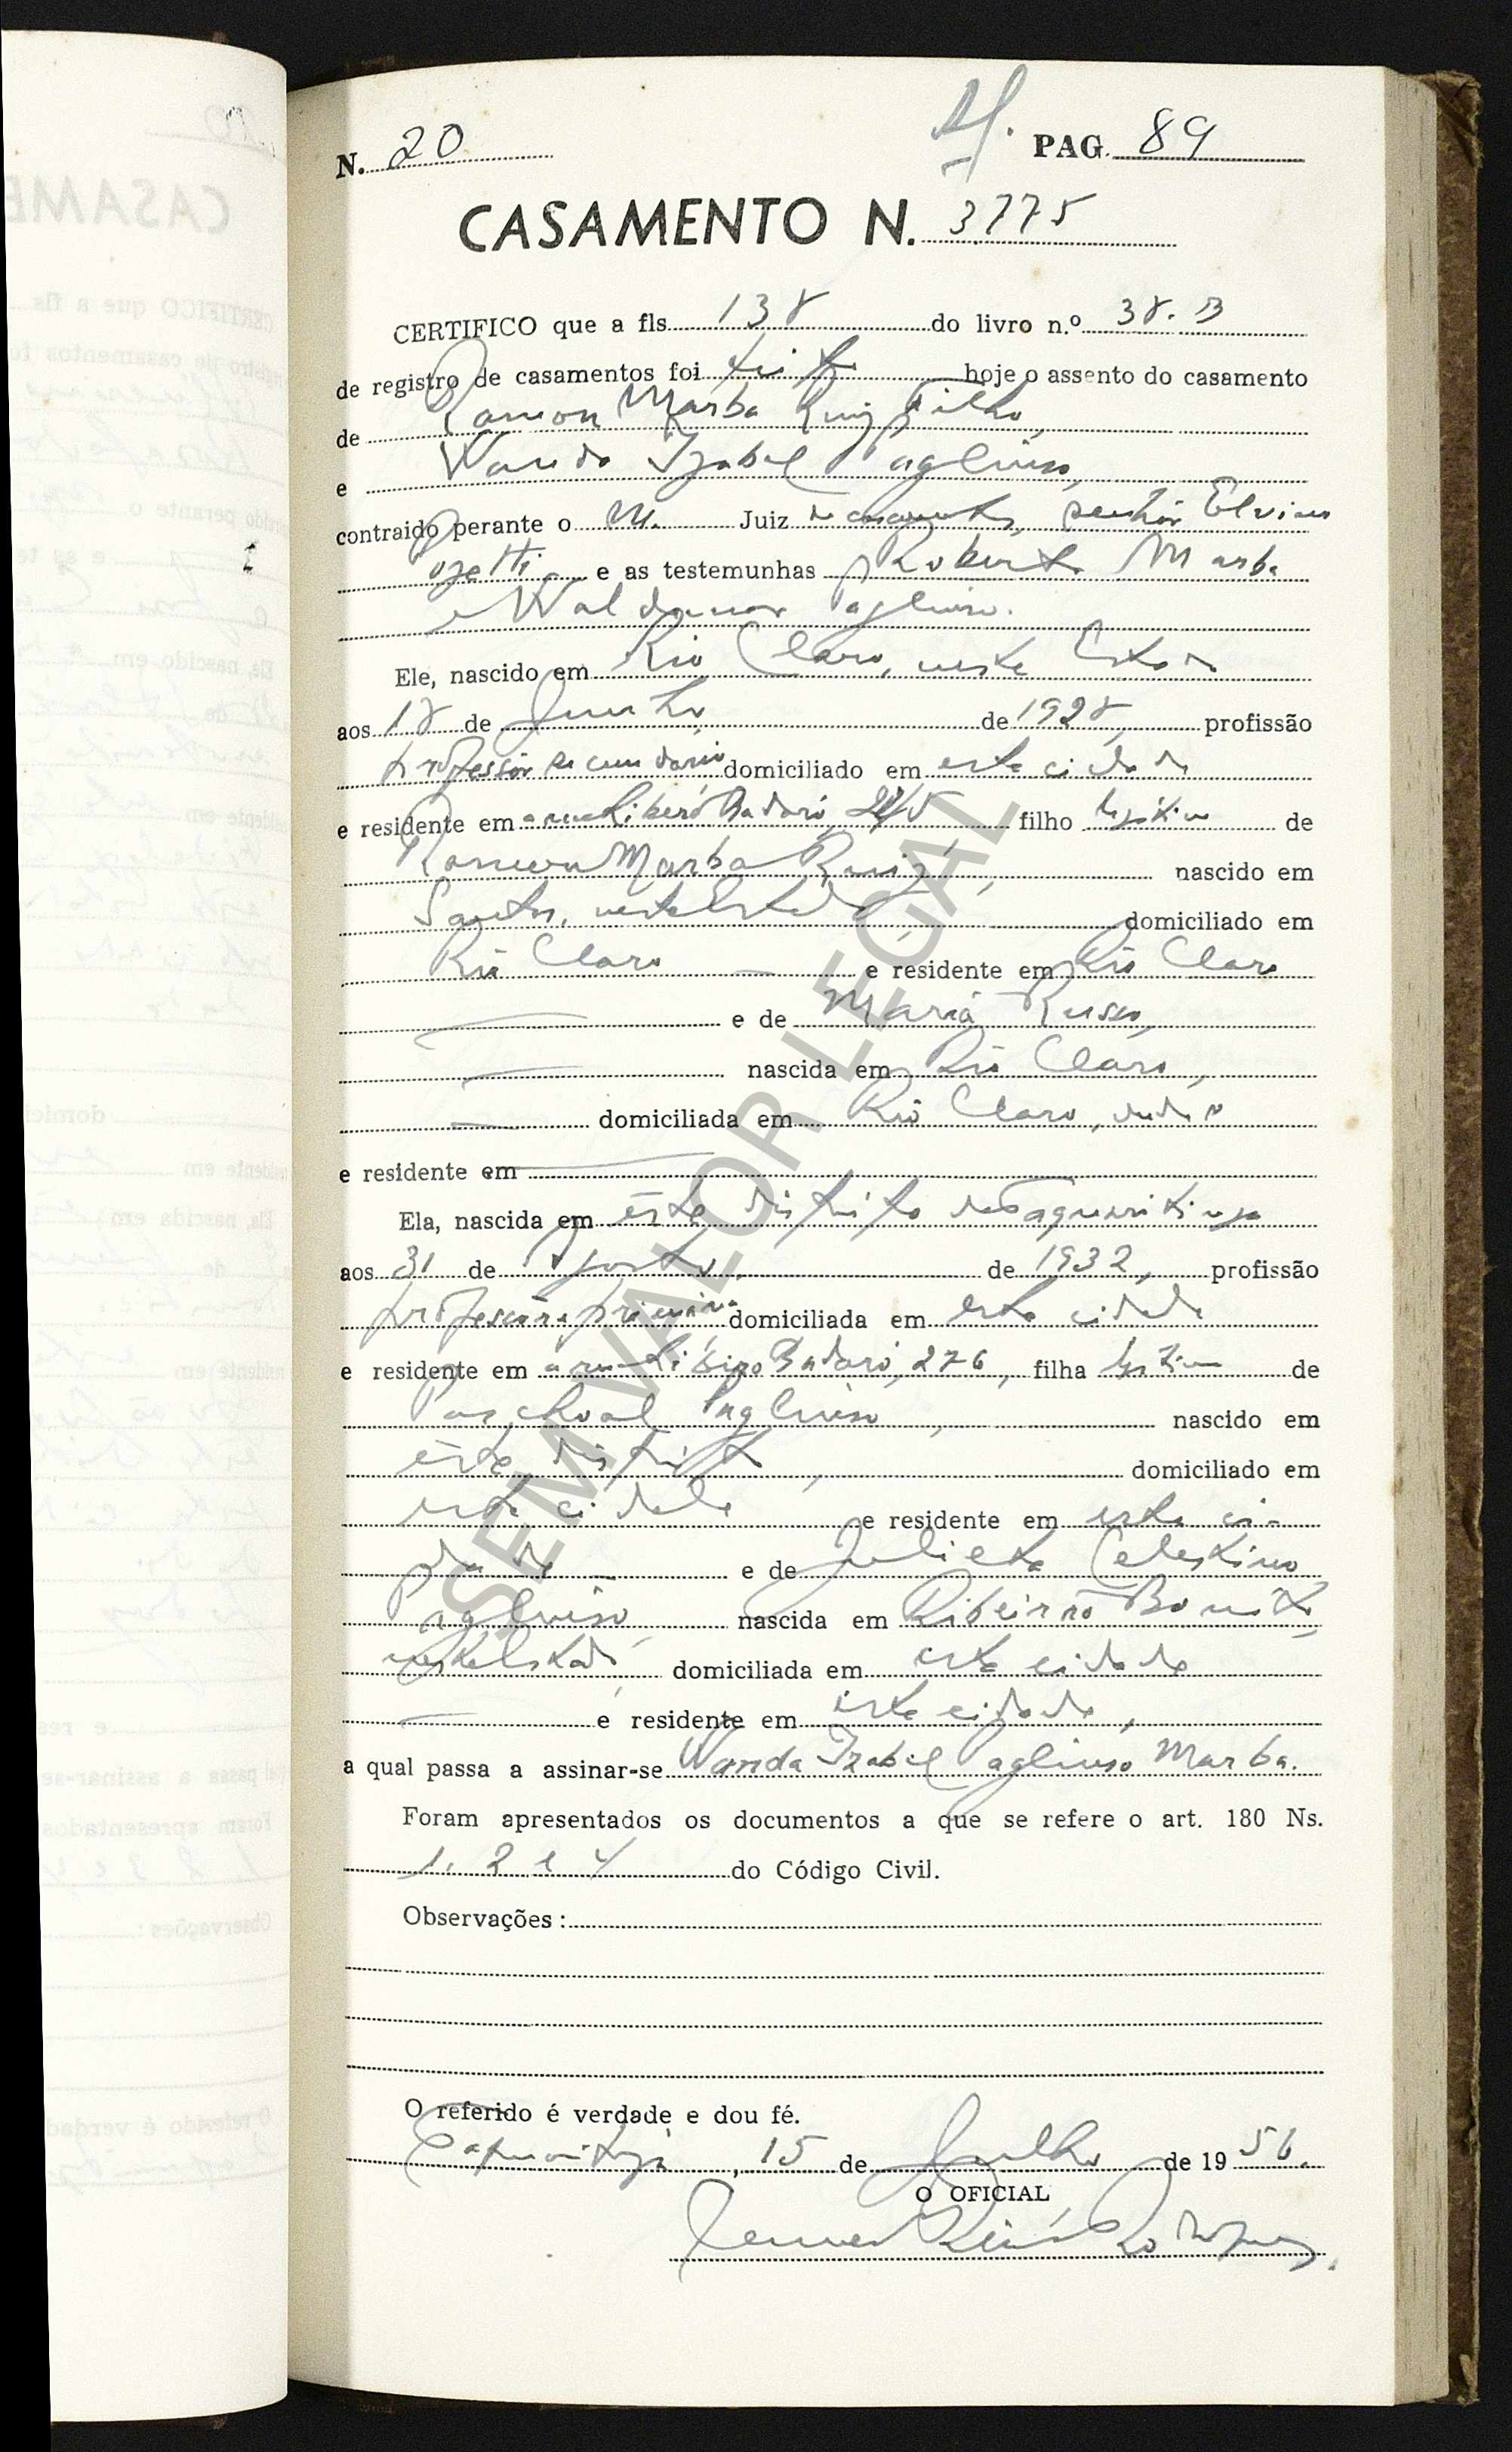 N. 20 PAG. 89
CASAMENTO N. 3775
CERTIFICO que a fls. 138 do livro n.º 38. B
de registro de casamentos foi feito hoje o assento do casamento
de Ramon Marba Ruiz Filho,
e Wanda Izabel Pagliuso,
contraido perante o M. Juiz de casamentos, senhor Elvino
Pozetti e as testemunhas Roberto Marba
e Waldemar Pagliuso.
Ele, nascido em Rio Claro, neste Estado
aos 18 de Junho de 1928, profissão
professor secundario domiciliado em esta cidade
e residente em a rua Libero Badaró, filho legitimo de
Ramon Marba Ruiz, nascido em
Santos, neste Estado domiciliado em
Rio Claro e residente em Rio Claro
e de Maria Russo,
nascida em Rio Claro,
domiciliada em Rio Claro,
e residente em
Ela, nascida em êste distrito de Taquaritinga
aos 31 de Agosto, de 1932, profissão
professora primária domiciliada em esta cidade
e residente em a rua Libero Badaró, 276, filha legitima de
Paschoal Pagliuso, nascido em
êste distrito, domiciliado em
esta cidade e residente em esta ci-
dade e de Julieta Celestino
Pagliuso nascida em Ribeirão Bonito,
neste Estado, domiciliada em esta cidade
e residente em esta cidade,
a qual passa a assinar-se Wanda Izabel Pagliuso Marba.
Foram apresentados os documentos a que se refere o art. 180 Ns.
1, 2 e 4 do Código Civil.
Observações :
O referido é verdade e dou fé.
Taquaritinga, 15 de Julho de 1956.
O OFICIAL
SEM VALOR LEGAL